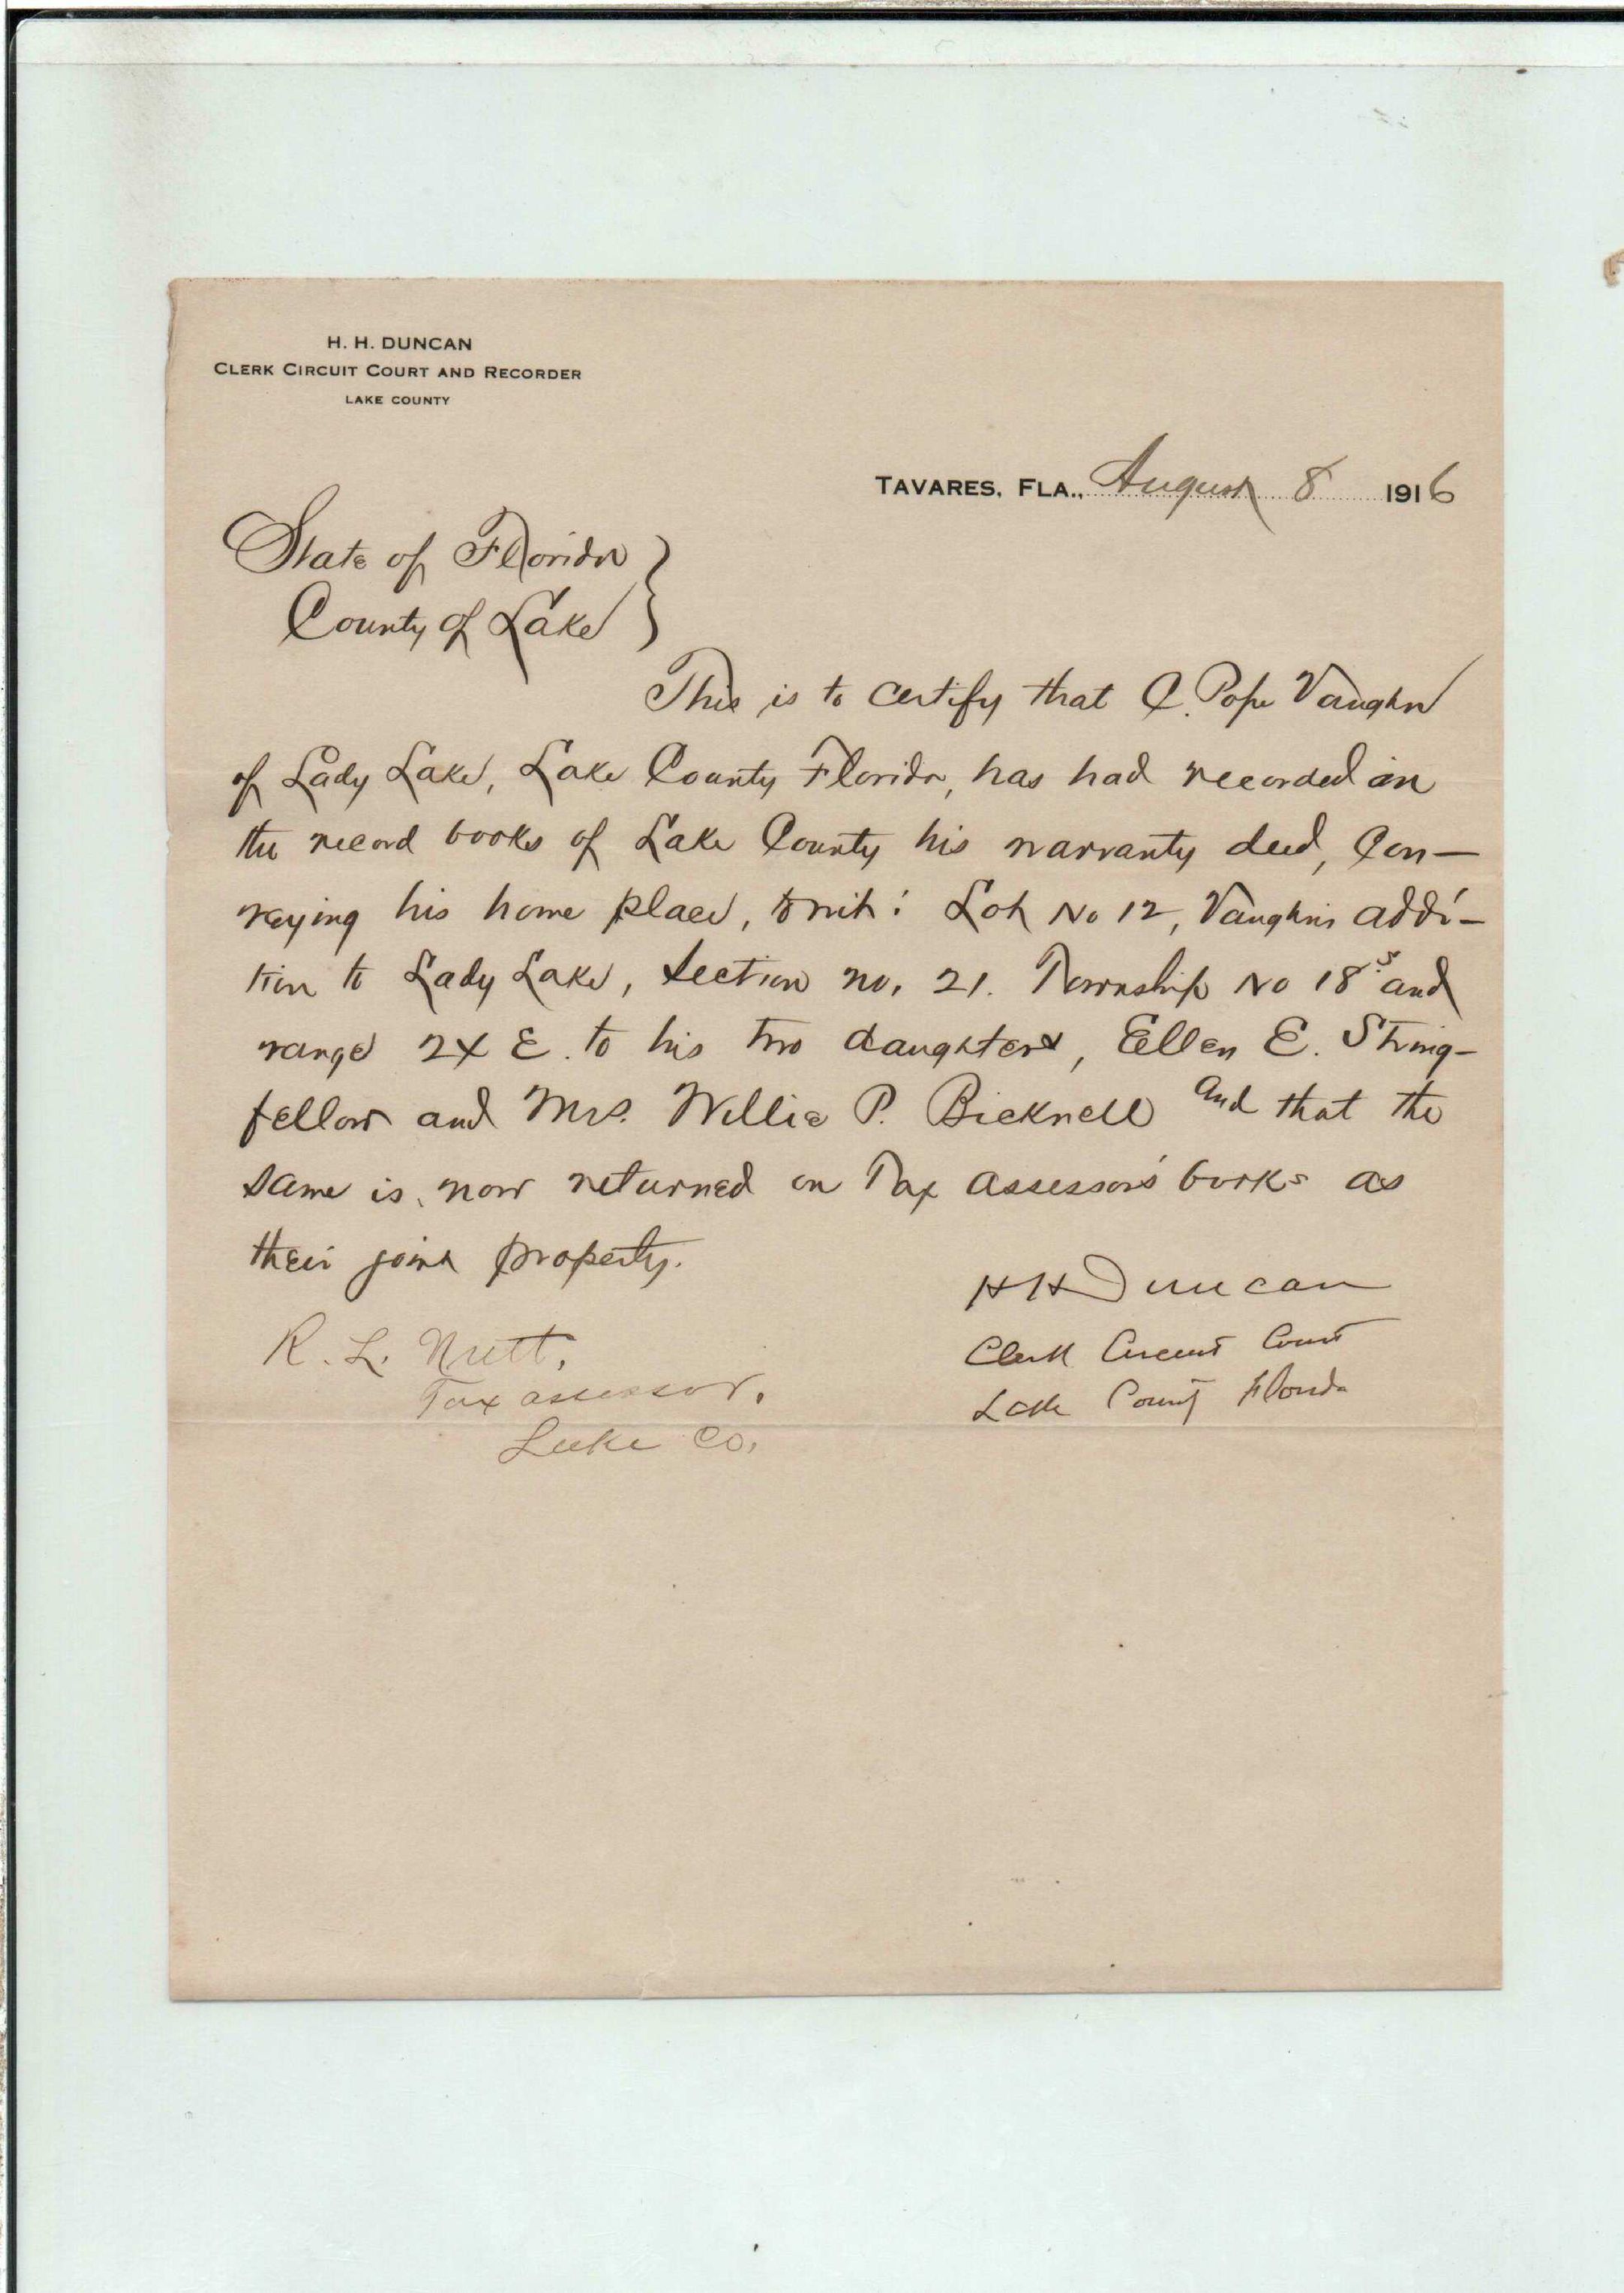 H. H. DUNCAN
CLERK CIRCUIT COURT AND RECORDER
LAKE COUNTY
TAVARES, FLA., August 8 1916
State of Florida }
County of Lake }
This is to certify that C. Pope Vaughn
of Lady Lake, Lake County Florida, has had recorded in
the record books of Lake County his warranty deed, Con—
veying his home place, towit: Lot No 12, Vaughns addi—
tion to Lady Lake, Section no. 21. Township No 18 s and
range 24 E. to his two daughters, Ellen E. String—
fellow and Mrs. Willie P. Bicknell and that the
same is now returned on Tax assessors' books as
their joint property.
H H Duncan
Clerk Circuit Court
Lake County Florida
R. L. Nutt,
Tax assessor.
Lake Co.